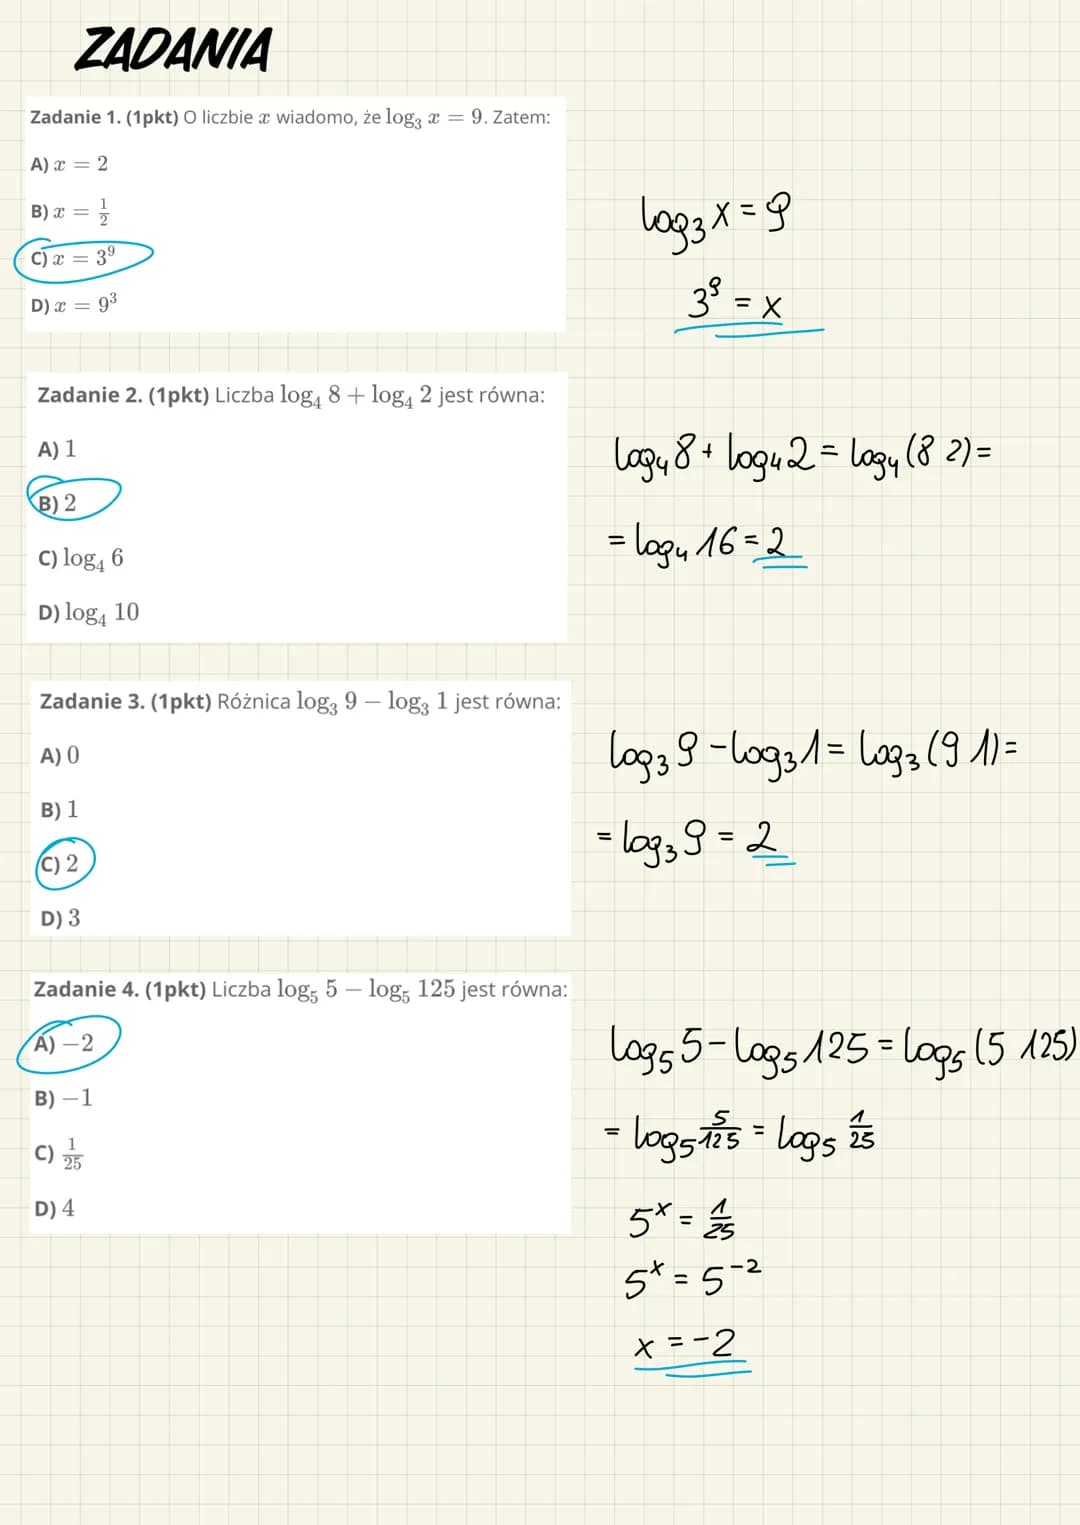 ZADANIA
Zadanie 1. (1pkt) O liczbie x wiadomo, że log₃ x = 9. Zatem:
A) x = 2
B) x = 1/2
C) x = 3⁹
D) x = 9³
log₃ x = 9
3⁹ = x
Zadanie 2. (1pkt) Liczba log₄ 8 + log₄ 2 jest równa:
A) 1
B) 2
C) log₄ 6
D) log₄ 10
log₄ 8 + log₄ 2 = log₄ (8 2) =
= log₄ 16 = 2
Zadanie 3. (1pkt) Różnica log₃ 9 − log₃ 1 jest równa:
A) 0
B) 1
C) 2
D) 3
log₃ 9 - log₃ 1 = log₃ (9 1) =
= log₃ 9 = 2
Zadanie 4. (1pkt) Liczba log₅ 5 − log₅ 125 jest równa:
A) −2
B) −1
C) 1/25
D) 4
log₅ 5 - log₅ 125 = log₅ (5 125)
= log₅ 5/125 = log₅ 1/25
5ˣ = 1/25
5ˣ = 5⁻²
x = -2